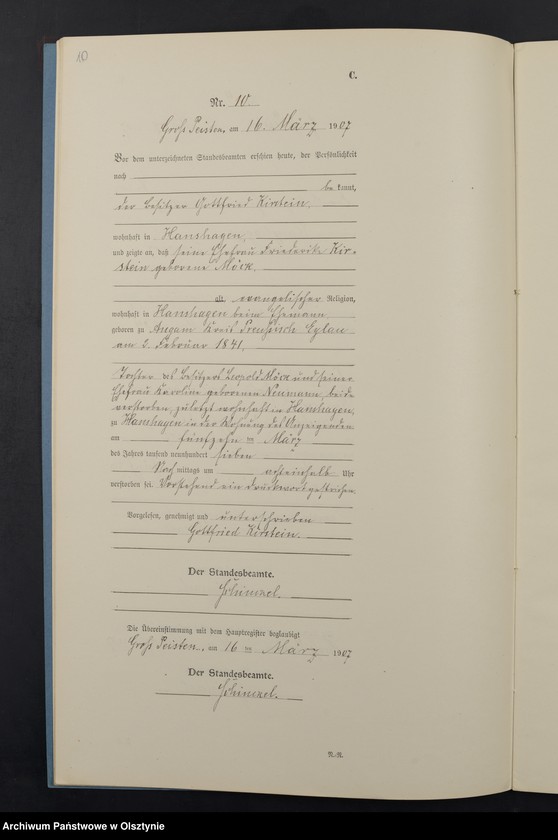 10
C.
Nr. 10
Groß Peisten, am 16. März 1907
Vor dem unterzeichneten Standesbeamten erschien heute, der Persönlichkeit
nach
be kannt,
der Besitzer Gottfried Kirstein,
wohnhaft in Hanshagen,
und zeigte an, daß seine Ehefrau Friederike Kir-
stein geborene Möck,
alt, evangelischer Religion,
wohnhaft in Hanshagen beim Ehemann
geboren zu Augam Kreis Preußisch Eylau
am 2. Februar 1841,
Tochter des Besitzers Leopold Möck und seiner
Ehefrau Karoline geborenen Neumann beide
verstorben, zuletzt wohnhaft in Hanshagen,
zu Hanshagen in der Wohnung des Anzeigenden
am fünfzehn ten März
des Jahres tausend neunhundert sieben
Nach mittags um achteinhalb Uhr
verstorben sei. Vorstehend ein Druckwort gestrichen.
Vorgelesen, genehmigt und unterschrieben
Gottfried Kirstein.
Der Standesbeamte.
Schimkel.
Die Übereinstimmung mit dem Hauptregister beglaubigt
Groß Peisten, am 16 ten März 1907
Der Standesbeamte.
Schimkel.
N.-N.
Archiwum Państwowe w Olsztynie